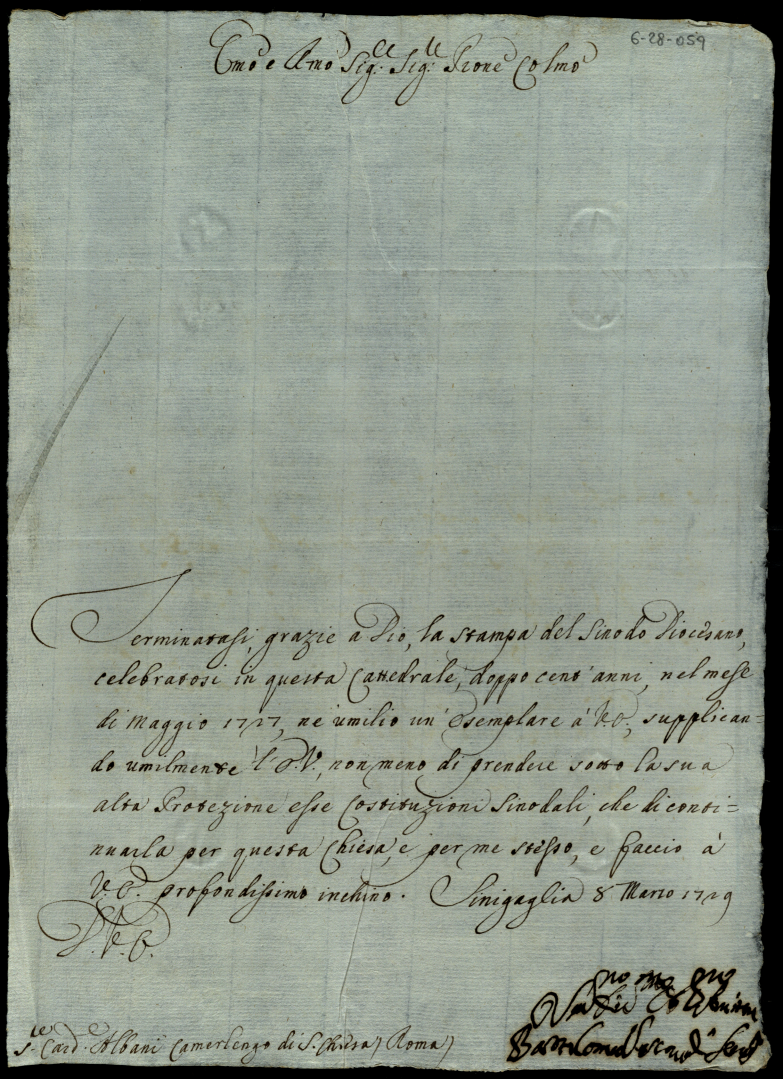 6-28-059
Emo e Rmo Sig.re Sig.re Prone Colmo
Terminatasi, grazie a Dio, la stampa del Sinodo Diocesano,
celebratosi in questa Cattedrale, doppo cent'anni, nel mese
di Maggio 1727, ne umilio un' Esemplare à V.E., supplican=
do umilmente l'E.V., non meno di prendere sotto la sua
alta Protezione esse Costituzioni Sinodali, che di conti=
nuarla per questa Chiesa, e per me stesso, e faccio à
V.E. profondissimo inchino. Sinigaglia 8 Marzo 1729
D. V. E.
Bartolomeo Vescovo di
S.re Card.e Albani Camerlengo di S. Chiesa / Roma /